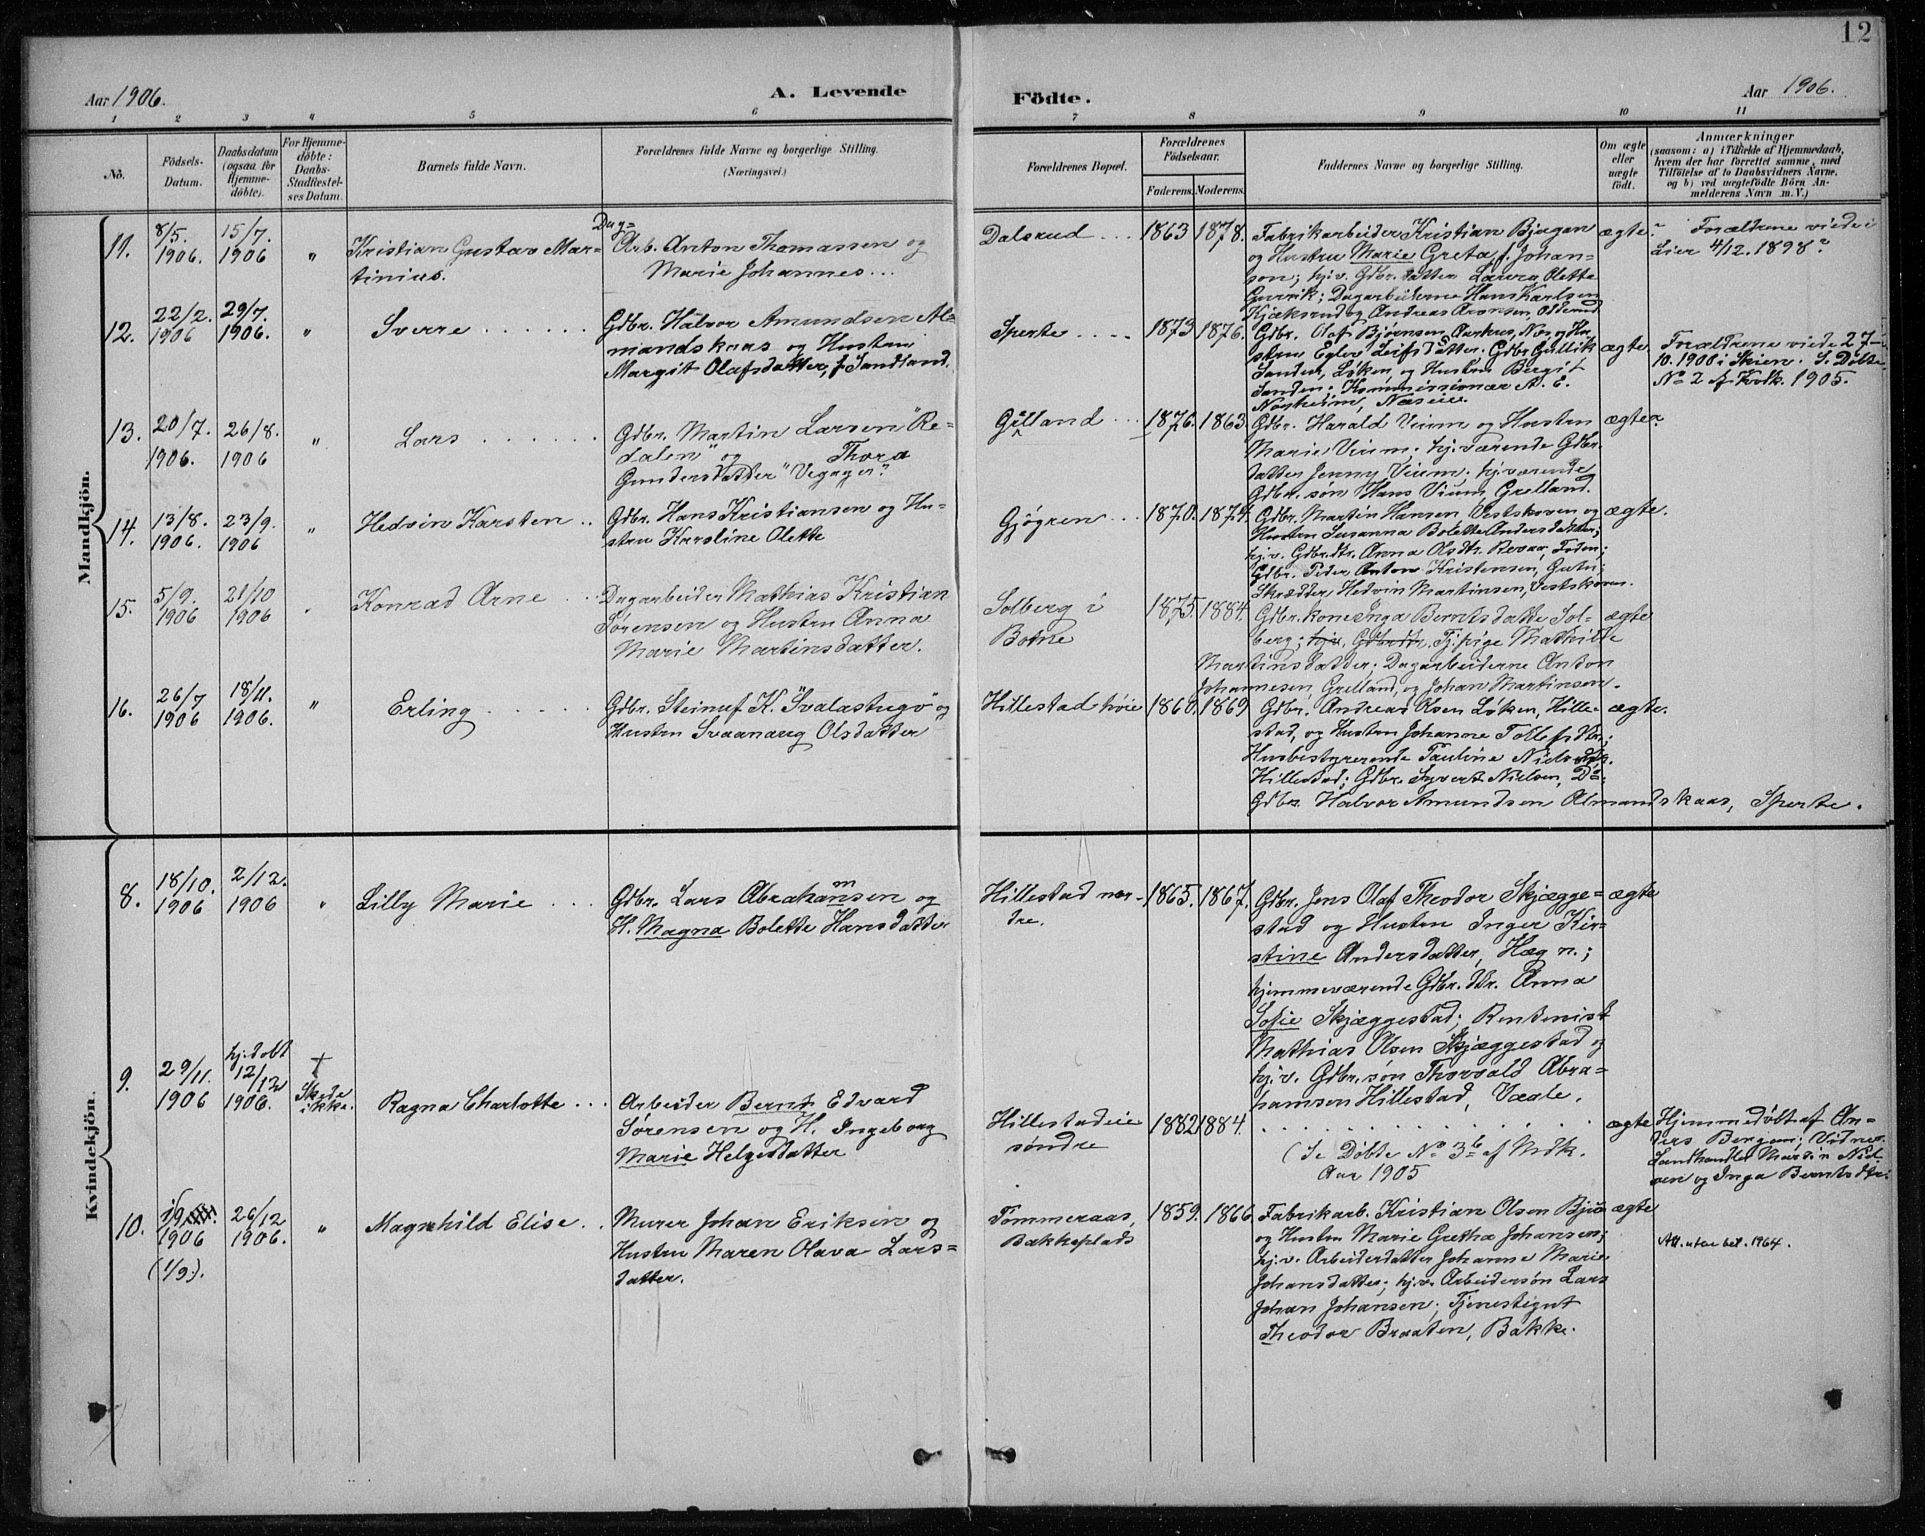 12
Aar 1906.
A. Levende
Födte.
Aar 1906.
1 2 3 4 5 6 7 8 9 10 11
No.
Födsels-
Datum.
Daabsdatum
(ogsaa for
Hjemme-
döbte).
For Hjemme-
döbte:
Daabs-
Stadfæstel-
ses Datum.
Barnets fulde Navn.
Forældrenes fulde Navne og borgerlige Stilling.
(Næringsvei.)
Forældrenes Bopæl.
Forældrenes
Födselsaar.
Faderens. Moderens.
Faddernes Navne og borgerlige Stilling.
Om ægte
eller
uægte
födt.
Anmærkninger
(saasom: a) i Tilfælde af Hjemmedaab,
hvem der har forrettet samme, med
Tilföielse af to Daabsvidners Navne,
og b) ved uægtefödte Börn An-
melderens Navn m. V.)
Mandkjön.
11.
8/5.
1906.
15/7.
1906
"
Kristian Gustav Mar-
tinius.
Dag-
Arb. Anton Thomassen og
Marie Johannes...
Dalsrud
1863
1878.
Fabrikarbeider Kristian Bjagen
og Hustru Marie Greta f. Johan-
son; hj.v. Gdbr. datter Laura Olette
Gurrik; Dagarbeiderne Hans Karlsen
Kjæksrud og Andreas Aronsen, Olderud
ægte?
Forældrene viede i
Lier 4/12. 1898?
12.
22/2.
1906
29/7.
1906.
"
Sverre
Gdbr. Halvor Amundsen Al-
mandskaas og Hustru
Margit Olafsdatter, f. Sandland.
Sperte
1873
1876.
Gdbr. Olaf Bjørnsen Aarhus, Nes og Hu-
stru Eglov Leifsdatter; Gdbr. Gullik
Sanden, Løken, og Hustru Bergit
Sanden; Kommissionær A. E.
Norheim, Næseie.
ægte
Forældrene viede 27-
10. 1900 i Skien. S. Døbte
No 2 af Kvdk. 1905.
13.
20/7.
1906.
26/8.
1906
"
Lars
Gdbr. Martin Larsen "Re-
dalen" og Thora
Gundersdatter "Vegager".
Grelland
1876.
1863
Gdbr. Harald Vium og Hustru
Marie Vium; hj.værende Gdbr.
datter Jenny Vium; hj.værende
Gdbr. søn Hans Vium, Grelland.
ægte?
14.
13/8.
1906.
23/9.
1906
"
Hedvin Karsten
Gdbr. Hans Kristiansen og Hu-
stru Karoline Olette
Gjøgren
1870.
1874.
Gdbr. Martin Hansen Vestskoven og
Hustru Susanna Bolette Andersdatter;
hj.v. Gdbr.dtr. Anna Olsdtr. Revaa, Foden;
Gdbr. Peder Anton Kristensen, Gutu;
Skrædder Hedvin Martinsen, Vestskoven.
ægte.
15.
5/9.
1906
21/10
1906
"
Konrad Arne
Dagarbeider Mathias Kristian
Sørensen og Hustru Anna
Marie Martinsdatter.
Solberg i
Botne
1875.
1884.
Gdbr.kone Inga Berntsdatte Sol-
berg; hj.v. Gdbrdtr. Tj.pige Mathilde
Martinsdatter; Dagarbeiderne Anton
Johannesen, Grelland, og Johan Martinsen.
ægte
16.
26/7
1906
18/11.
1906.
"
Erling
Gdbr. Steinuf K. "Svalastugo" og
Hustru Svaanaug Olsdatter
Hillestad høie
1860.
1869
Gdbr. Andreas Olsen Løken, Hille-
stad, og Hustru Johanne Tollefsdtr.;
Husbestyrerende Pauline Nielsdtr.
Hillestad; Gdbr. Syvert Nielsen, Do;
Gdbr. Halvor Amundsen Almandskaas, Sperte.
ægte.
Kvindekjön.
8.
18/10.
1906
2/12.
1906
"
Lilly Marie
Gdbr. Lars Abrahamsen og
H. Magna Bolette Hansdatter
Hillestad nor-
dre.
1865.
1867.
Gdbr. Jens Olaf Theodor Skjægge-
stad og Hustru Inger Kir-
stine Andersdatter, Hæg n.;
hjemmeværende Gdbr. dtr. Anna
Sofie Skjæggestad; Rentenist
Mathias Olsen Skjæggestad og
hj.v. Gdbr. søn Thorvald Abra-
hamsen Hillestad, Vaale.
ægte
9.
29/11.
1906
hj.døbt
12/12
1906.
+
Skede
ikke.
Ragna Charlotte
Arbeider Bernt Edvard
Sørensen og H. Ingeborg
Marie Helgesdatter
Hillestadeie
søndre
1882
1884.
(Se Døbte No 3b af Mdk.
Aar 1905
ægte
Hjemmedøbt af An-
ders Bergan; Vidner
Landhandler Martin Niel-
sen og Inga Berntsdtr.
10.
19
1906
(1/9.).
26/12
1906.
"
Magnhild Elise
Murer Johan Eriksen og
Hustru Maren Olava Lars-
datter.
Tommeraas,
Bakkeplads
1859.
1866
Fabrikarb. Kristian Olsen Bju
og Hustru Marie Gretha Johansen;
hj.v. Arbeiderdatter Johanne Marie
Johansdatter; hj.v. Arbeidersøn Lars
Johan Johansen; Tjenestegut
Theodor Braaten, Bakke.
ægte
Att. uten bet. 1964.